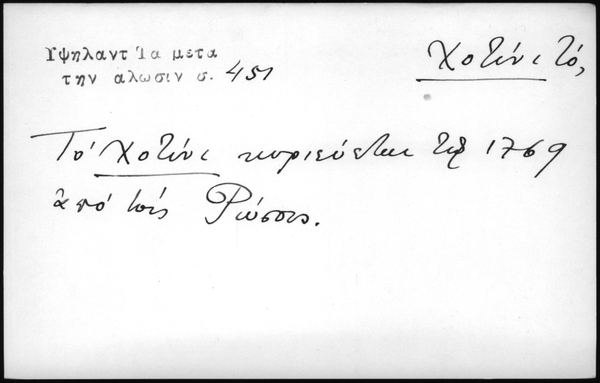 Υψηλαντ Τα μετα
την αλωσιν σ. 451
Χοτίνι τό,
Τό Χοτίνι κυριεύεται τῷ 1769
ἀπό τούς Ρώσσους.